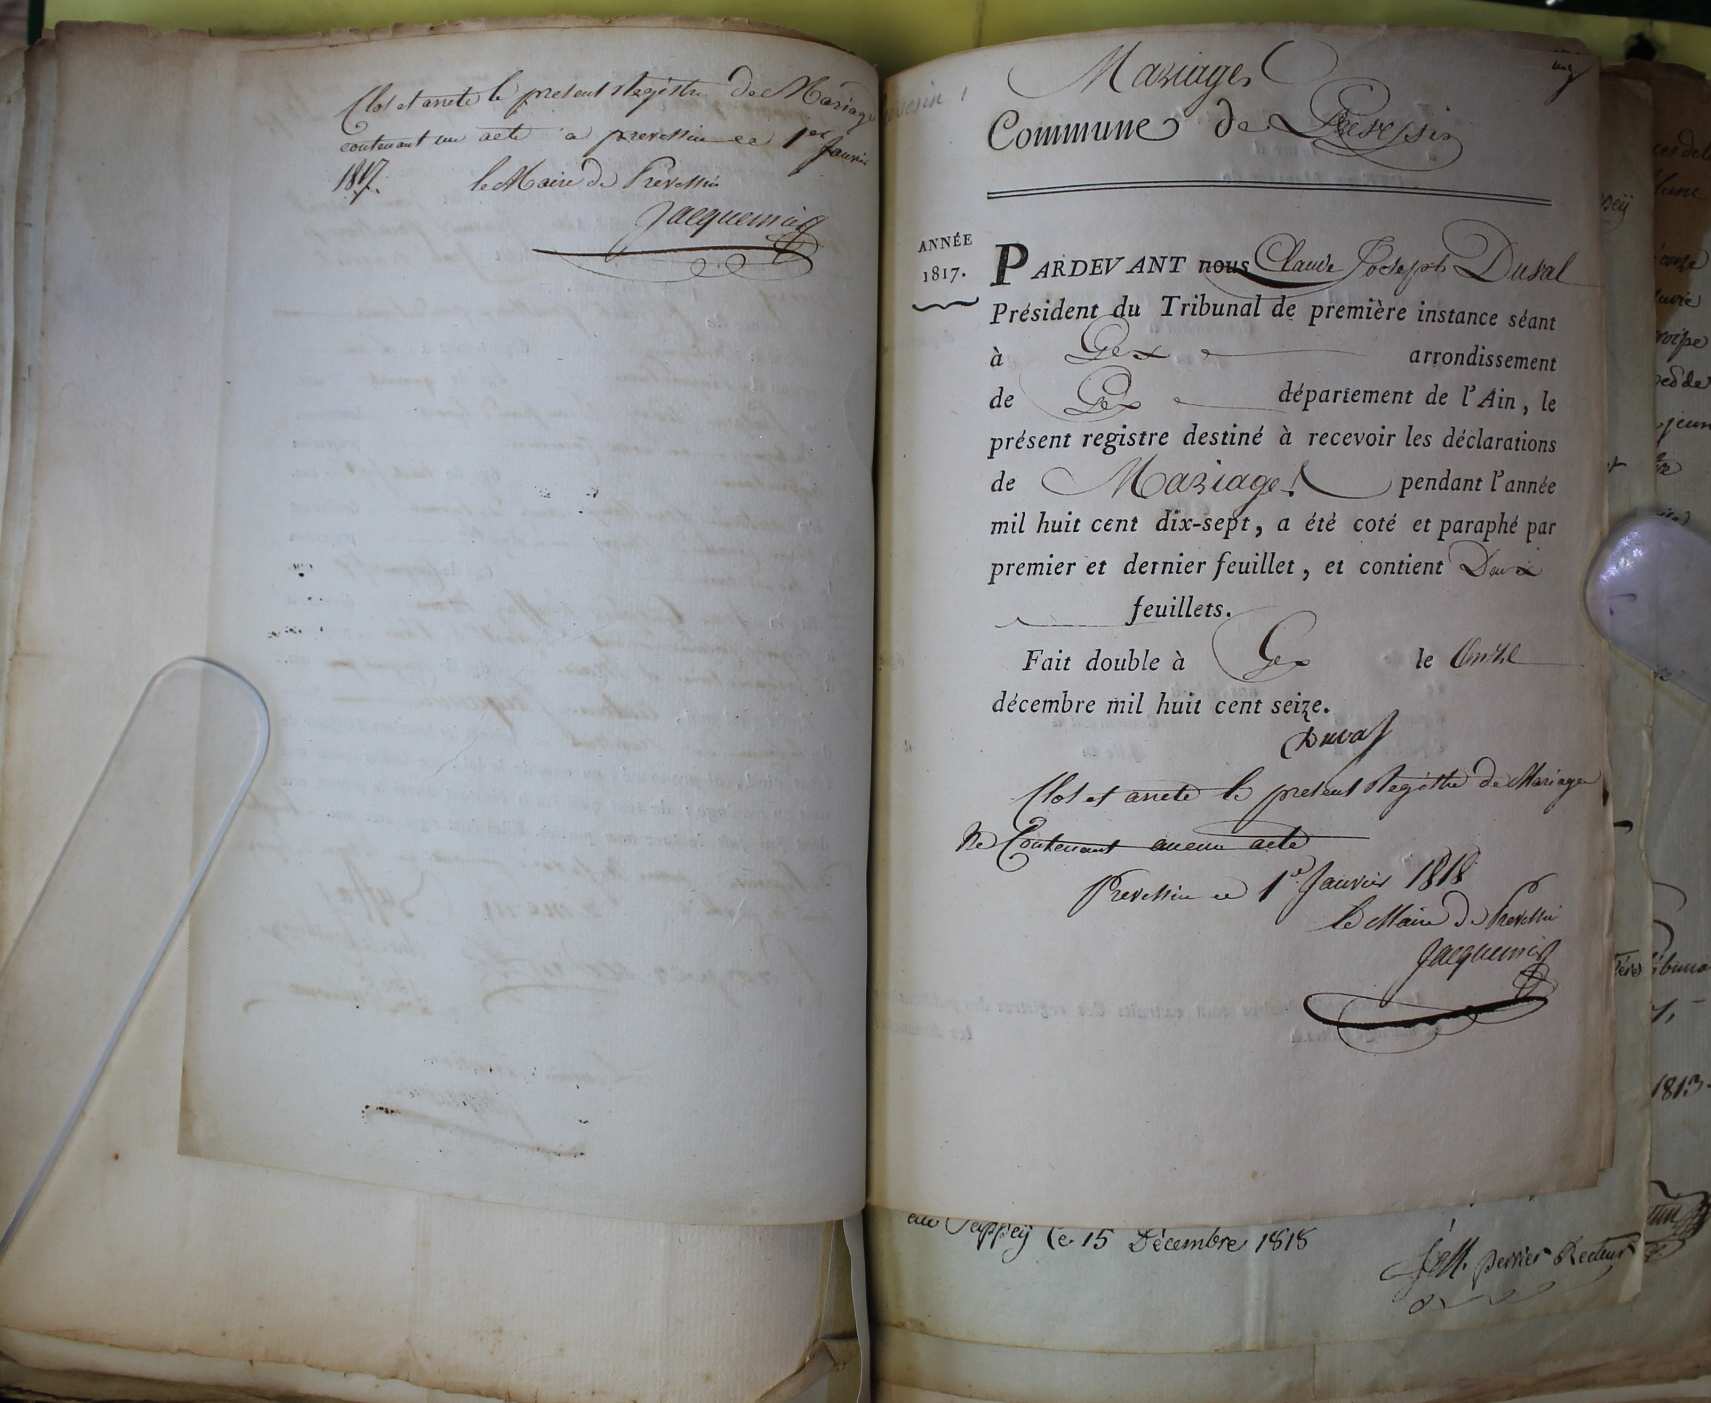 Clos et arreté le present Registre de Mariage
contenant un acte a prevessin ce 1er Janvier
1817.
le Maire de Prevessin
Jacquemin
Mariages
Commune de Prevessin
ANNÉE
1817.
PARDEVANT nous Claude Joseph Duval
Président du Tribunal de première instance séant
à Gex arrondissement
de Gex département de l'Ain, le
présent registre destiné à recevoir les déclarations
de Mariages pendant l'année
mil huit cent dix-sept, a été coté et paraphé par
premier et dernier feuillet, et contient Deux
feuillets.
Fait double à Gex le Onze
décembre mil huit cent seize.
Duval
Clos et arreté le present Registre de Mariage
Ne Contenant aucun acte
Prevessin ce 1er Janvier 1818
le Maire de Prevessin
Jacquemin
au Sappey le 15 Décembre 1818
perrier Recteur
1813